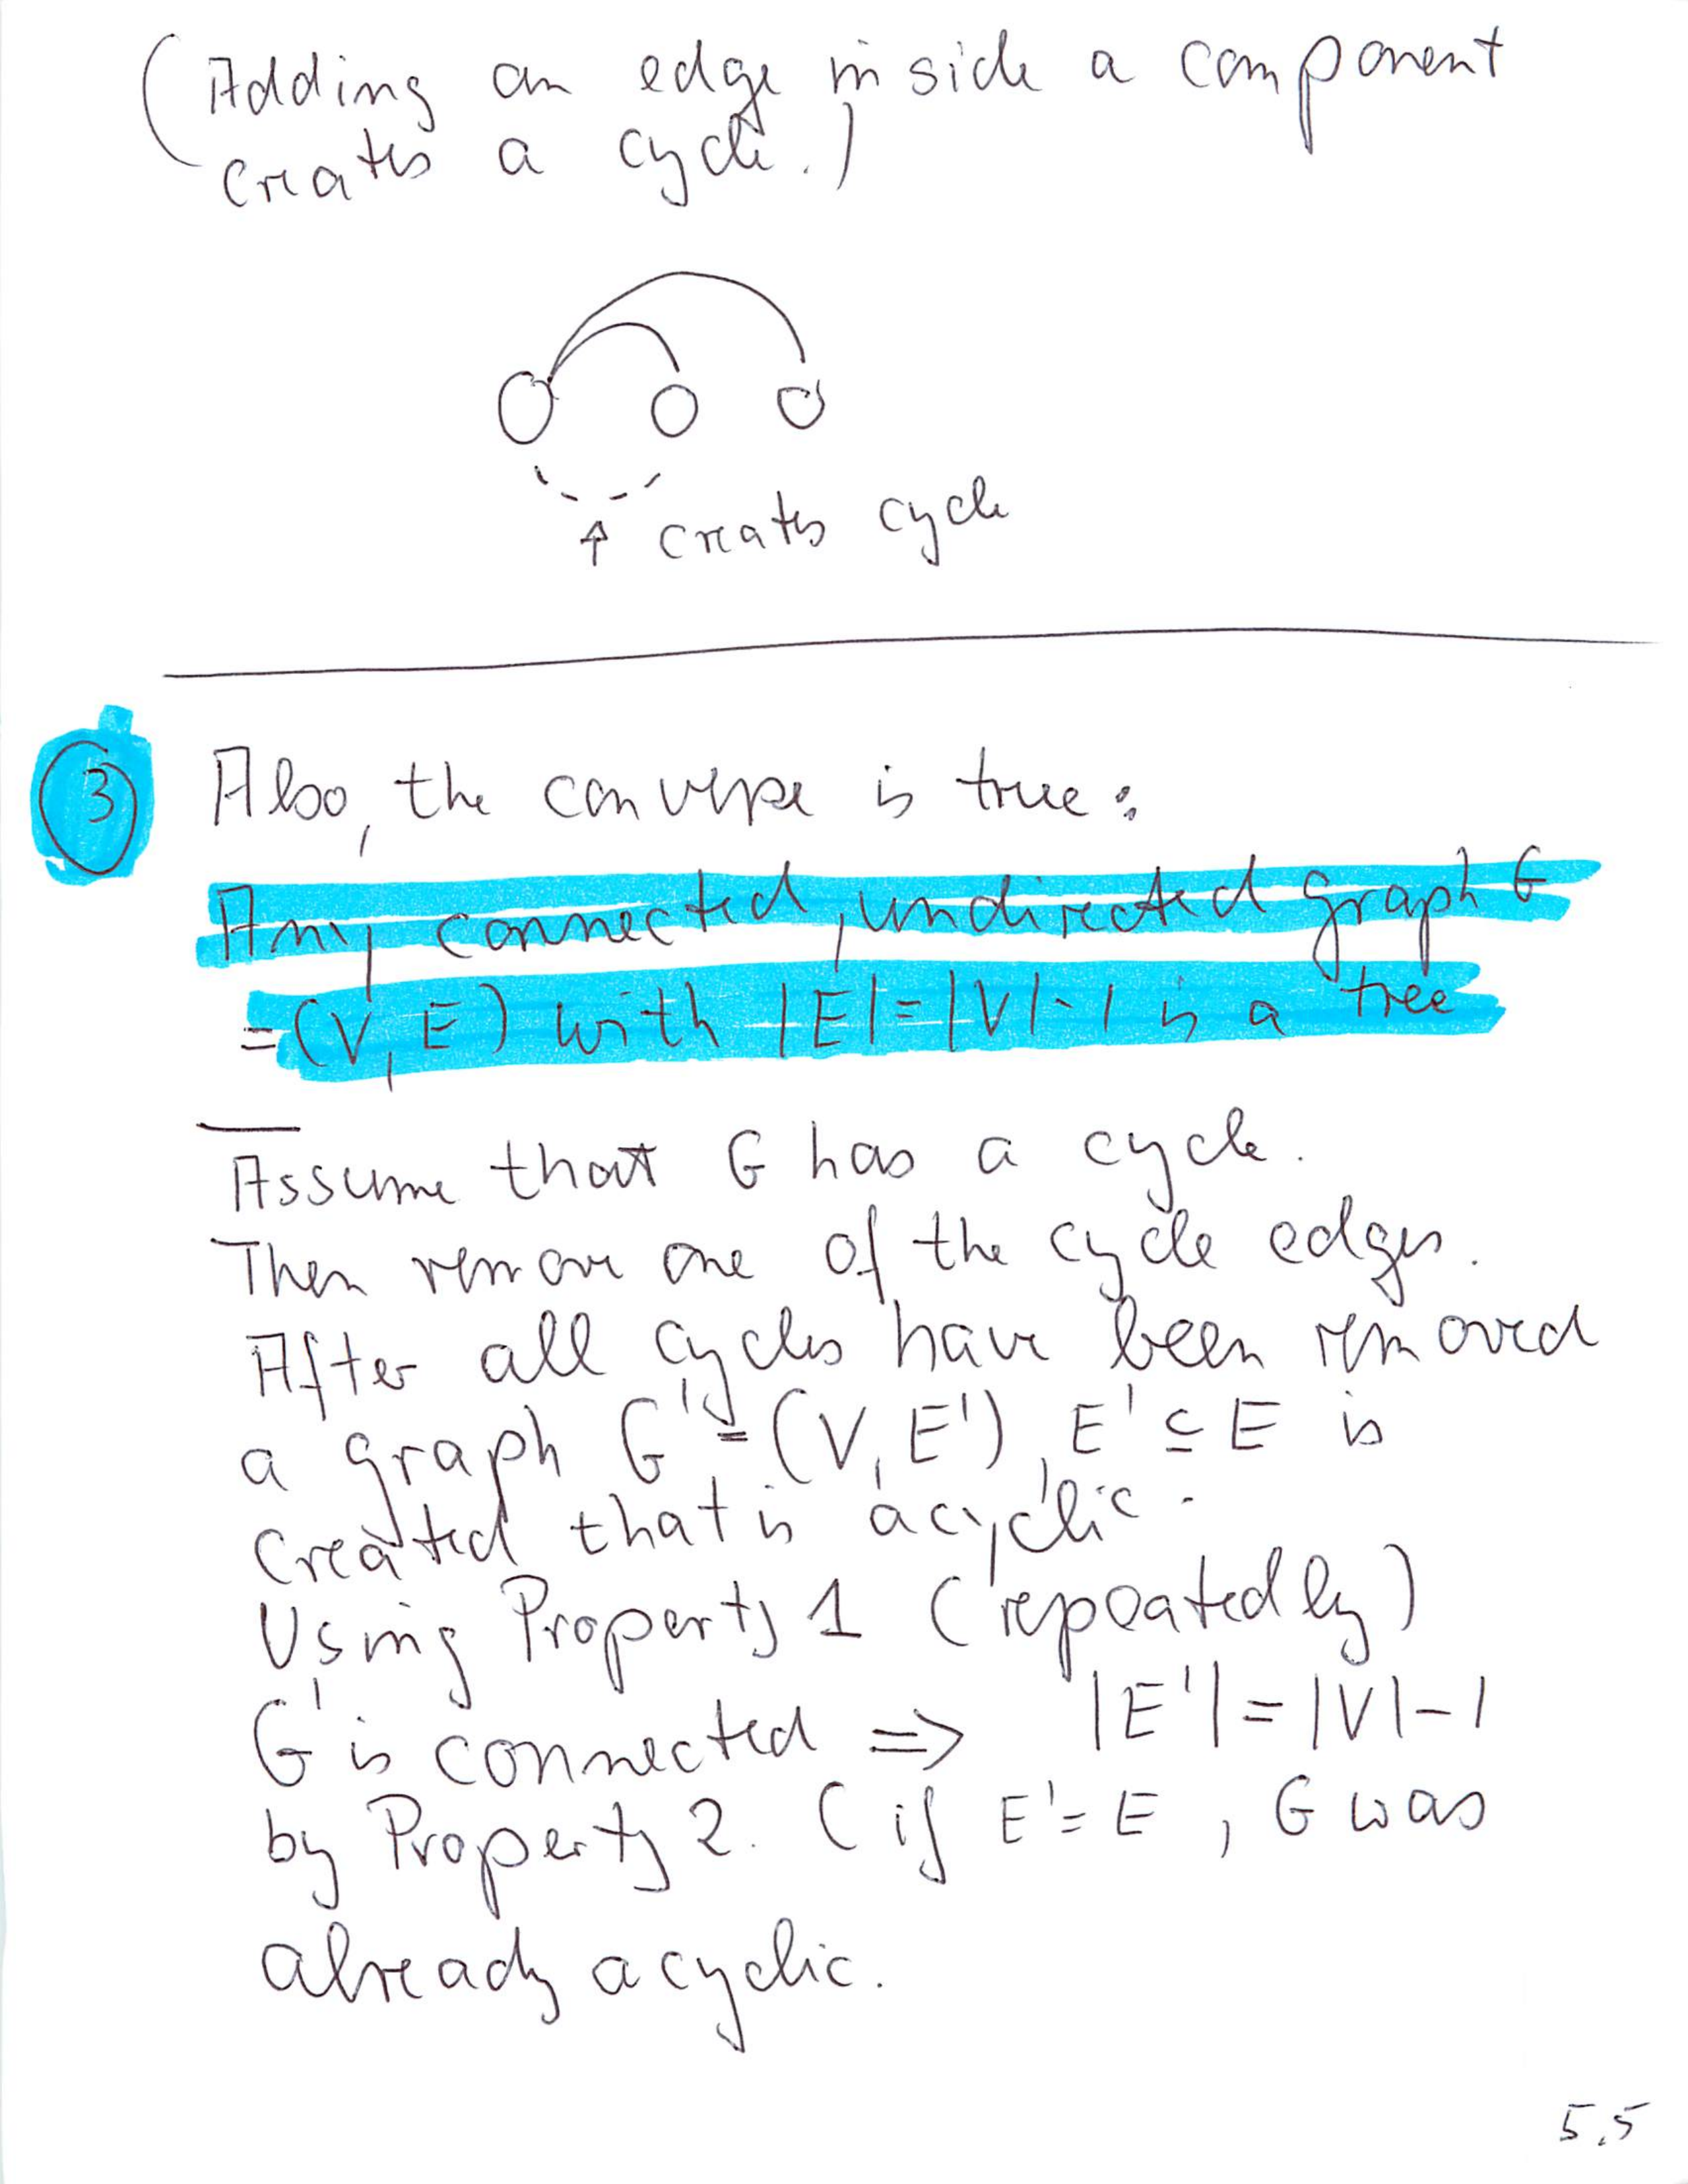 (Adding an edge inside a component
creates a cycle.)
↑ creates cycle
③ Also, the converse is true:
Any connected, undirected graph G
=(V,E) with |E|=|V|-1 is a tree
Assume that G has a cycle.
Then remove one of the cycle edges.
After all cycles have been removed
a graph G'=(V,E'), E'⊆E is
created that is acyclic.
Using Property 1 (repeatedly)
G' is connected => |E'|=|V|-1
by Property 2. (if E'=E, G was
already acyclic.
5.5